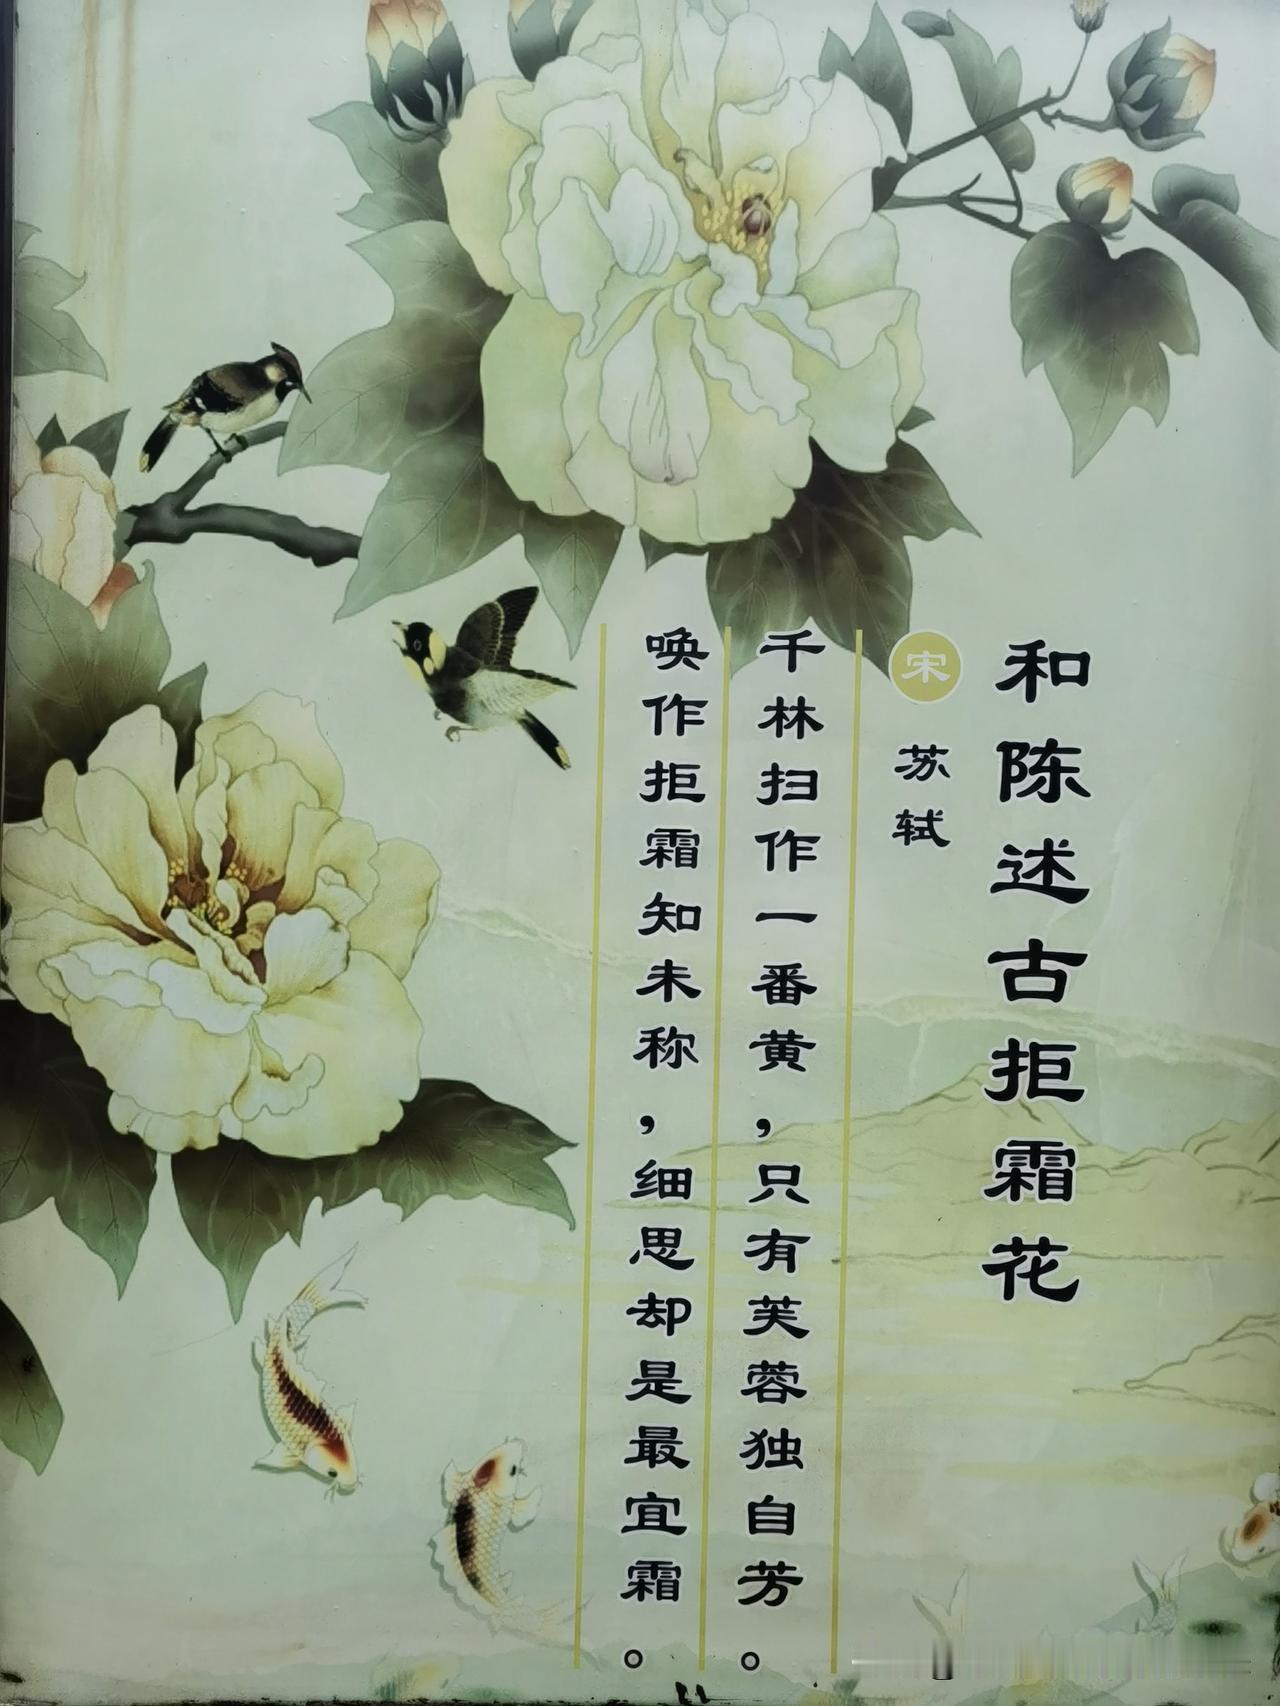 和陈述古拒霜花
宋 苏轼
千林扫作一番黄，只有芙蓉独自芳。
唤作拒霜知未称，细思却是最宜霜。